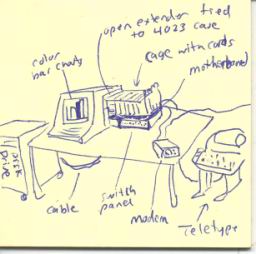 open extender tied
to 4023 case
color
bar charts
cage with cards
motherboard
disk
drive
cable
switch
panel
modem
Teletype